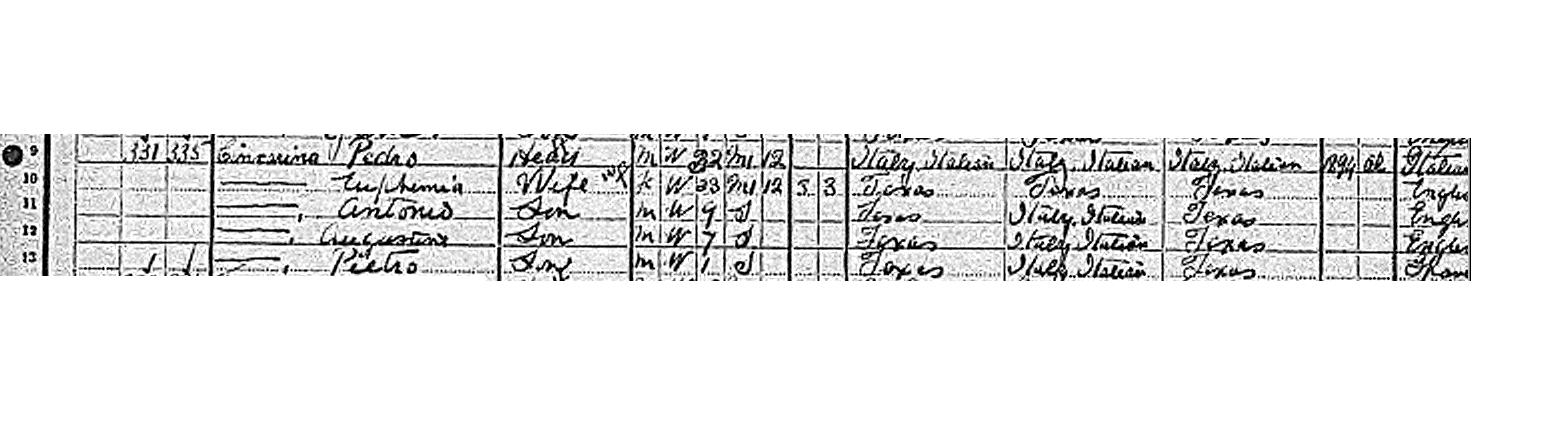 9 331 335 Pedro Head M W 32 M1 12 Italy, Italian Italy, Italian Italy, Italian 1894 al Italian
10 Euphemia Wife W 33 M1 12 3 3 Texas Texas Texas
11 Antonio Son M W 9 S Texas Italy, Italian Texas
12 Son M W 7 S Texas Italy, Italian Texas
13 Pietro Son M W 1 S Texas Italy, Italian Texas